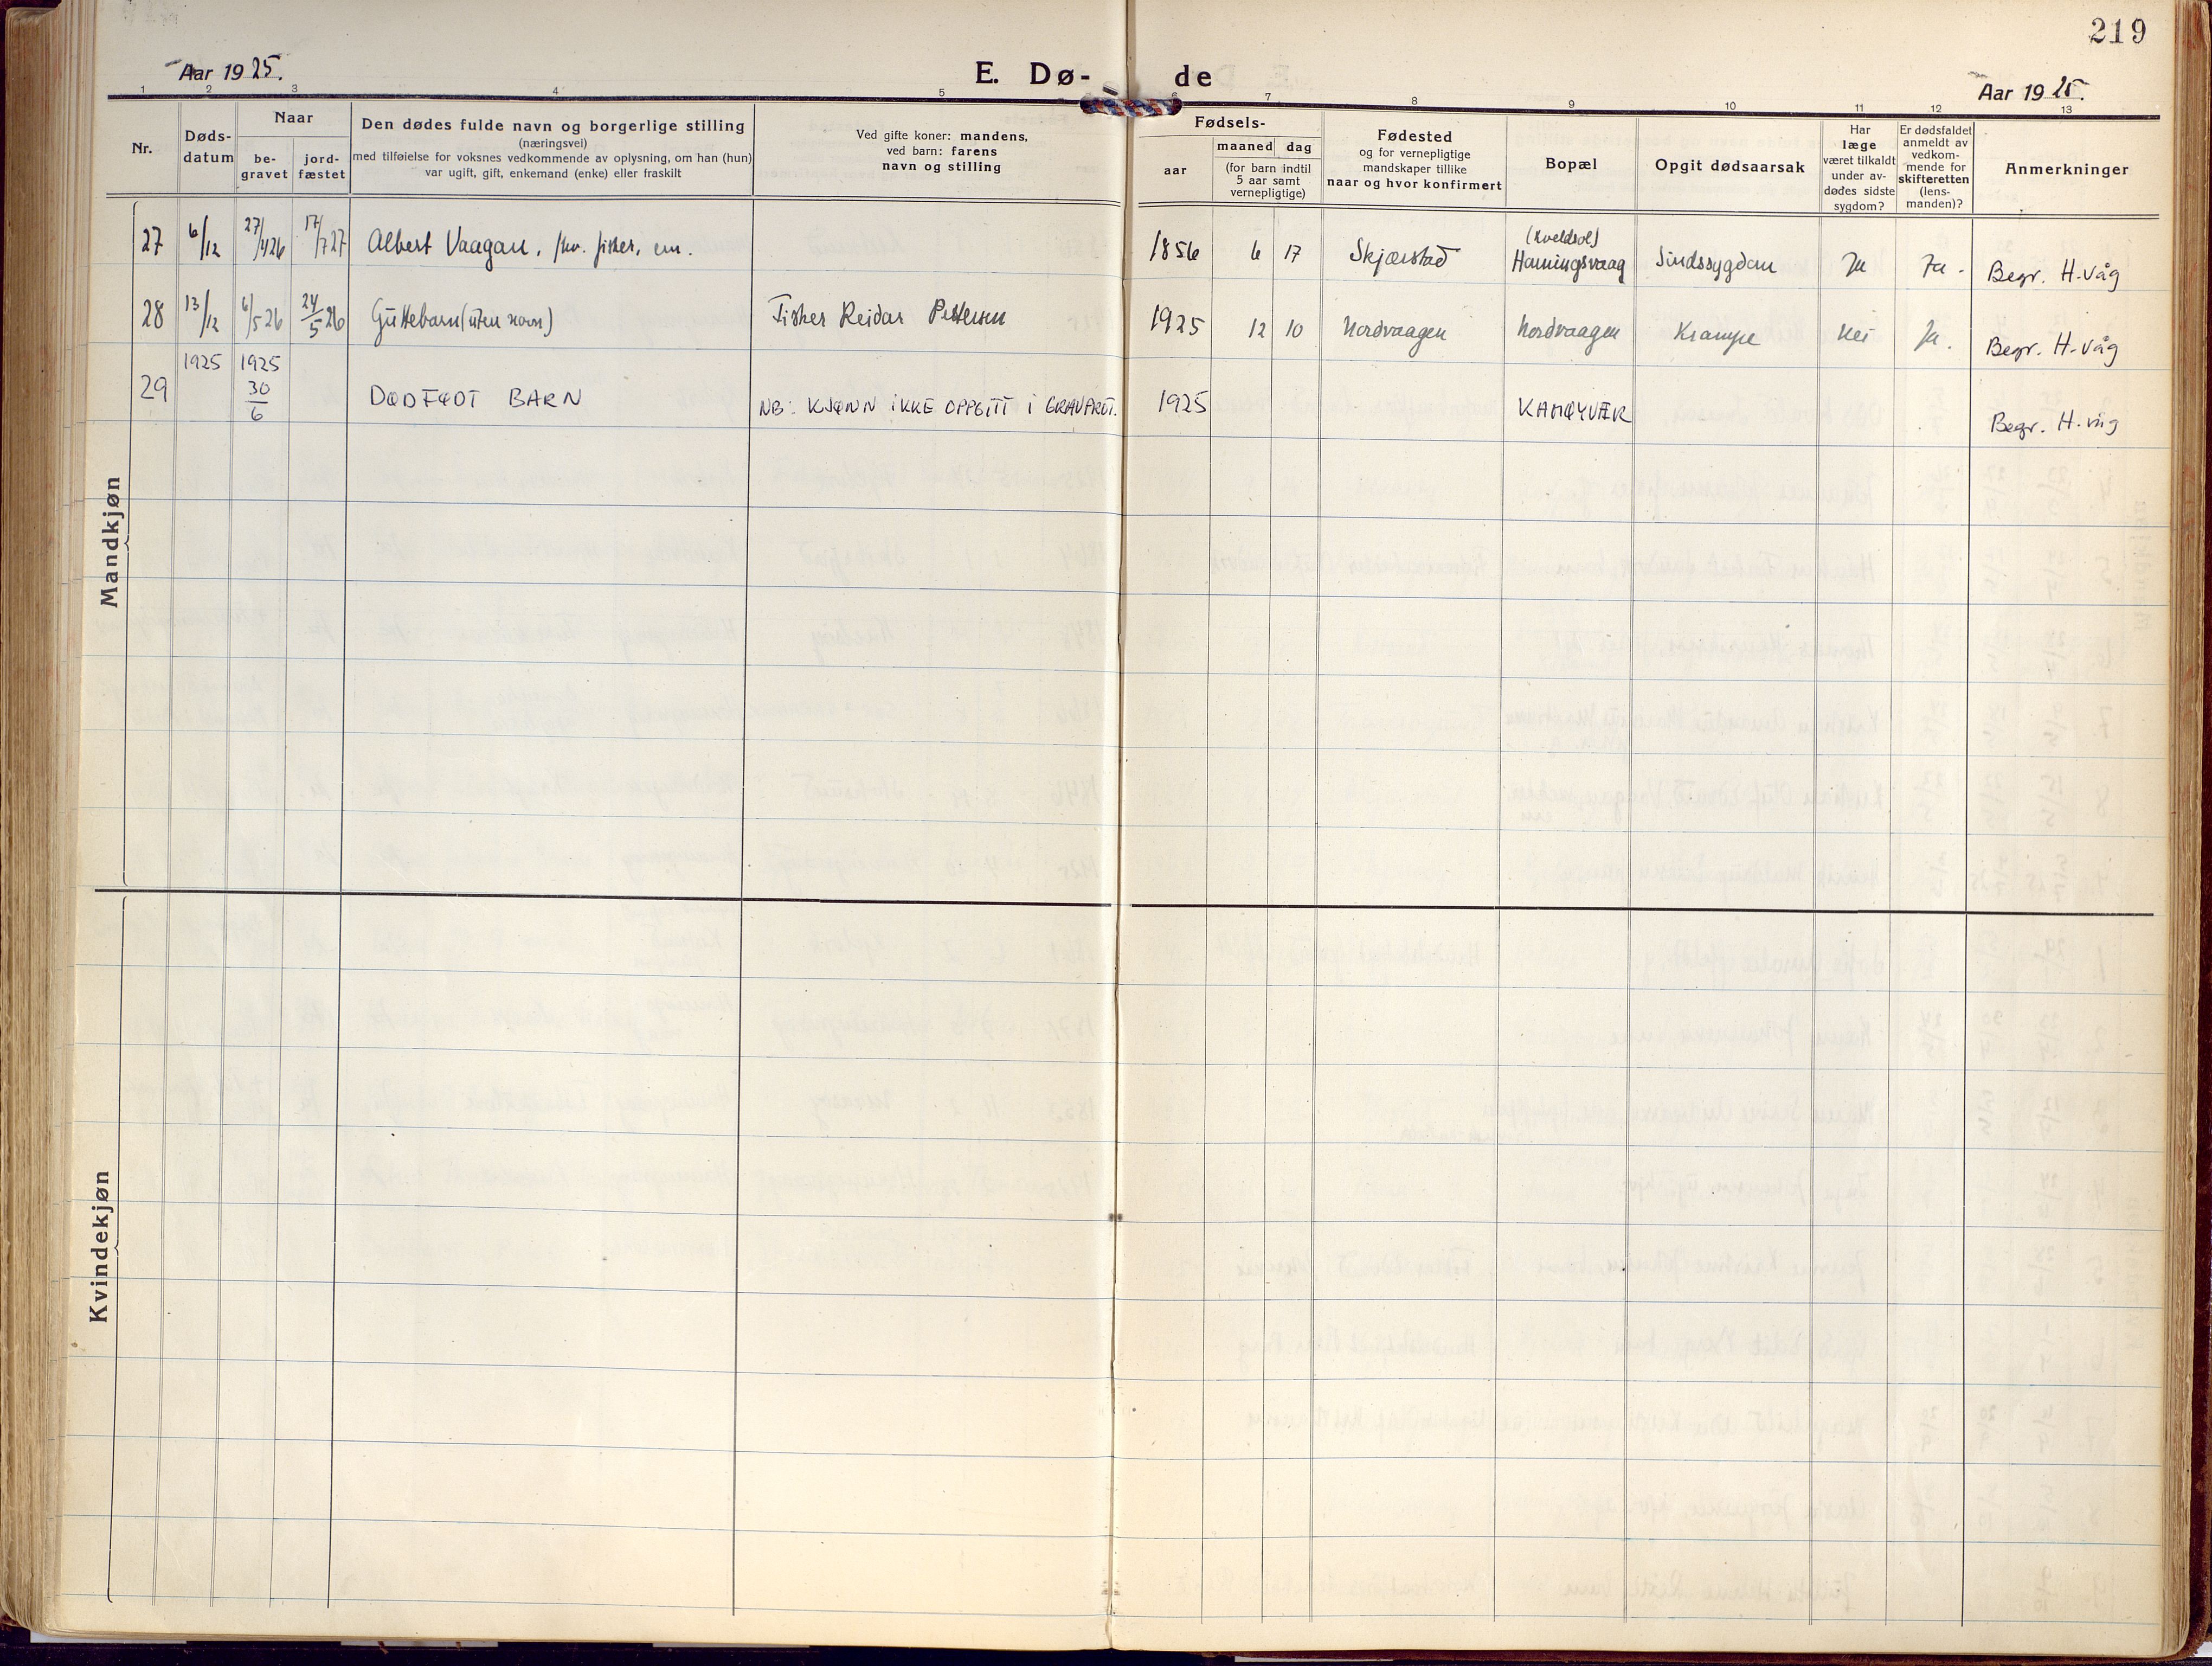 219
Aar 1925.
E. Dø- de
Aar 1925.
1 2 3 4 5 6 7 8 9 10 11 12 13
Nr.
Døds-
datum
Naar
be-
gravet
jord-
fæstet
Den dødes fulde navn og borgerlige stilling
(næringsvei)
med tilføielse for voksnes vedkommende av oplysning, om han (hun)
var ugift, gift, enkemand (enke) eller fraskilt
Ved gifte koner: mandens,
ved barn: farens
navn og stilling
Fødsels-
aar
maaned dag
(for barn indtil
5 aar samt
vernepligtige)
Fødested
og for vernepligtige
mandskaper tillike
naar og hvor konfirmert
Bopæl
Opgit dødsaarsak
Har
læge
været tilkaldt
under av-
dødes sidste
sygdom?
Er dødsfaldet
anmeldt av
vedkom-
mende for
skifteretten
(lens-
manden)?
Anmerkninger
Mandkjøn
27 6/12 27/4 26 17/7 27 Albert Vaagan, fhv. fisker, em. 1856 6 17 Skjærstad (Kveldsol) Honningsvaag Sindssygdom Ja Ja. Begr. H-våg
28 13/12 6/5 26 24/5 26 Guttebarn (uten navn) Fisker Reidar Pettersen 1925 12 10 Nordvaagen Nordvaagen Krampe Nei Ja. Begr. H-våg
29 1925 1925 30/6 DØDFØDT BARN NB: KJØNN IKKE OPPGITT I GRAVPROT. 1925 KAMØYVÆR Begr. H-våg
Kvindekjøn